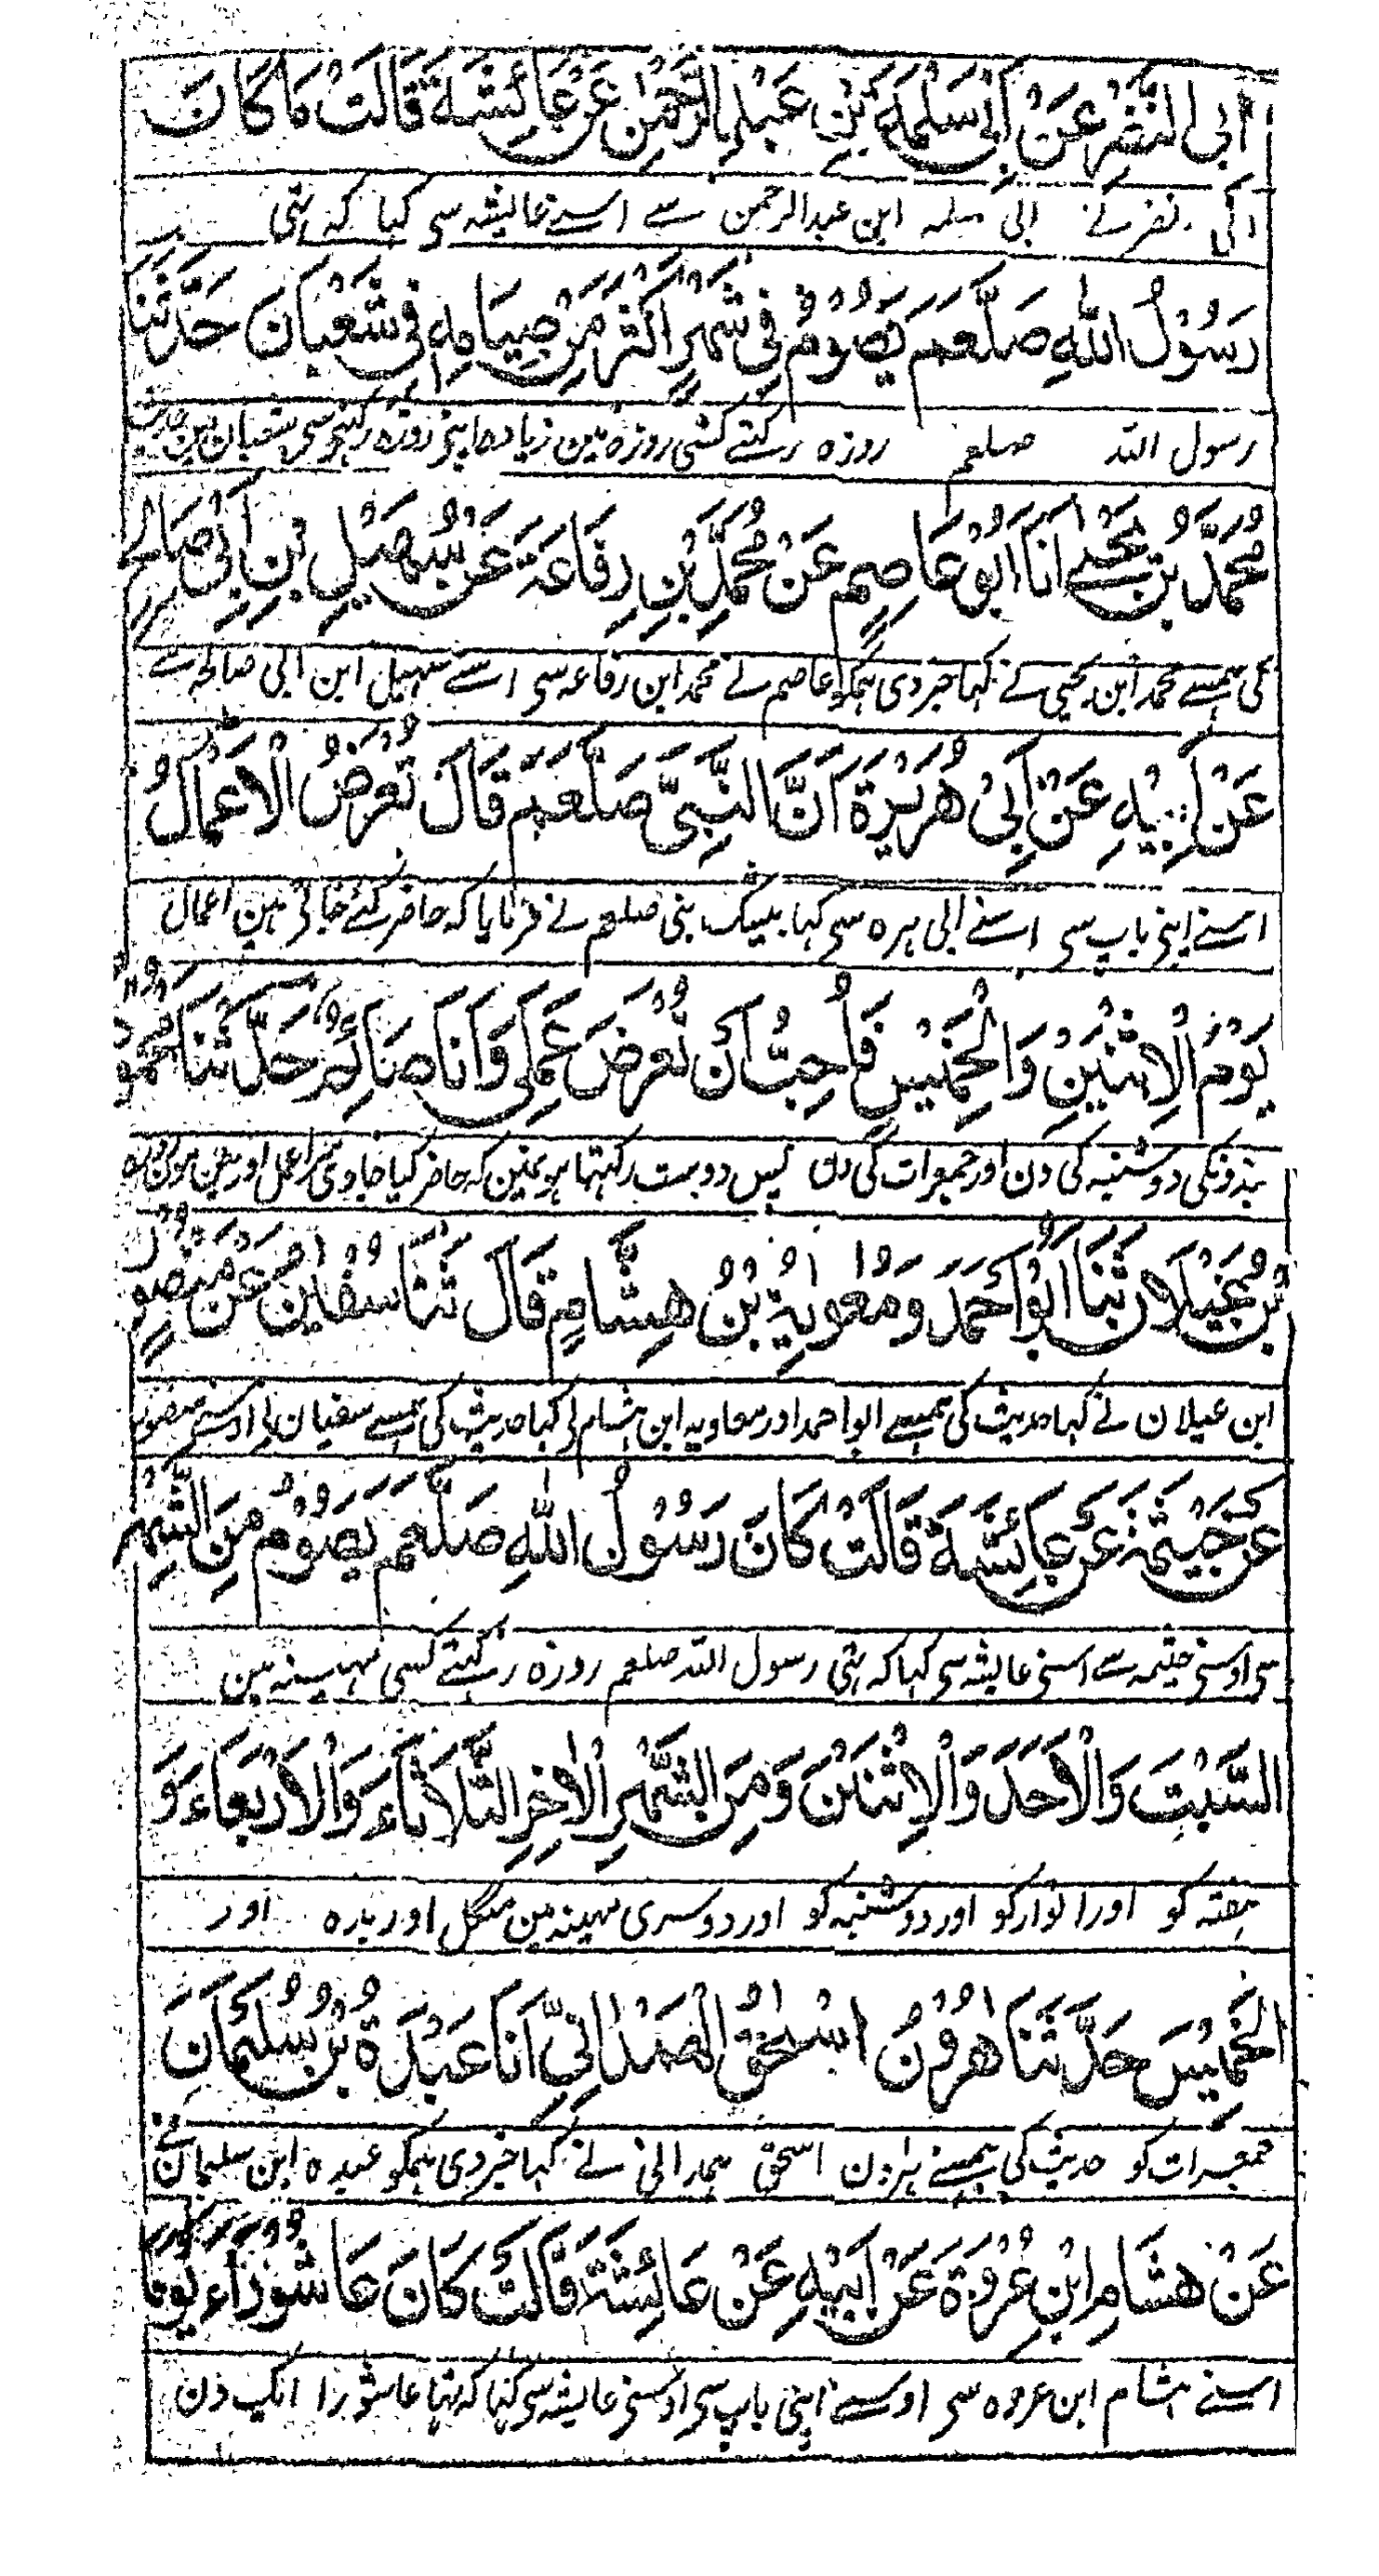 ابی النضر عن ابی سلمة بن عبد الرحمن عن عائشة قالت ما کان
ابی نضر نے ابی سلمہ ابن عبدالرحمن سے اسنے عایشہ سی کہا کہ نہی
رسول الله صلعم یصوم فی شهر اکثر من صیامه فی شعبان حدثنا
رسول اللہ صلعم روزہ رکہتے کسی روزہ مین زیادہ اپنی روزہ رکہنی سی شعبان مین حدیث
محمد بن یحیی انا ابو عاصم عن محمد بن رفاعة عن سهیل بن ابی صالح
کی ہمسے محمد ابن یحیی نے کہا خبر دی ہمکو ابو عاصم نے محمد ابن رفاعہ سی اسنے سہیل ابن ابی صالح سے
عن ابیه عن ابی هریرة ان النبی صلعم قال تعرض الاعمال
اسنے اپنی باپ سی اسنے ابی ہرہ سی کہا بیشک نبی صلعم نے فرمایا کہ حاضر کئے جاتی ہین اعمال
یوم الاثنین والخمیس فاحب ان تعرض عملی وانا صائم حدثنا محمود
بندونکی دوشنبہ کی دن اور جمعرات کی دن پس دوست رکہتا ہو نمین کہ حاضر کیا جاوی میرا عمل اور مین ہون
بن غیلان ثنا ابو احمد ومعویة بن هشام قال ثنا سفیان عن منصور
ابن غیلان نے کہا حدیث کی ہمسے ابو احمد اور معاویہ ابن ہشام نے کہا حدیث کی ہمسے سفیان نے اوسنے منصور
عن خیثمة عن عائشة قالت کان رسول الله صلعم یصوم من الشهر
سی اوسنی خیثمہ سے اسنی عایشہ سی کہا کہ نہی رسول اللہ صلعم روزہ رکہتے کسی مہینہ مین
السبت والاحد والاثنین ومن الشهر الاخر الثلاثاء والاربعاء و
ہفتہ کو اور اتوار کو اور دوشنبہ کو اور دوسری مہینہ مین منگل اور بارہ اور
الخمیس حدثنا هرون اسحق الهمدانی انا عبدة بن سلیمان
جمعرات کو حدیث کی ہمسے ہارون اسحق ہمدانی نے کہا خبر دی ہمکو عبدہ ابن سلیمان نے
عن هشام ابن عروة عن ابیه عن عائشة قالت کان عاشوراء یوما
اسنے ہشام ابن عروہ سی اوسنے اپنی باپ سی اوسنی عایشہ سی کہا کہ تہا عاشورا ایک دن